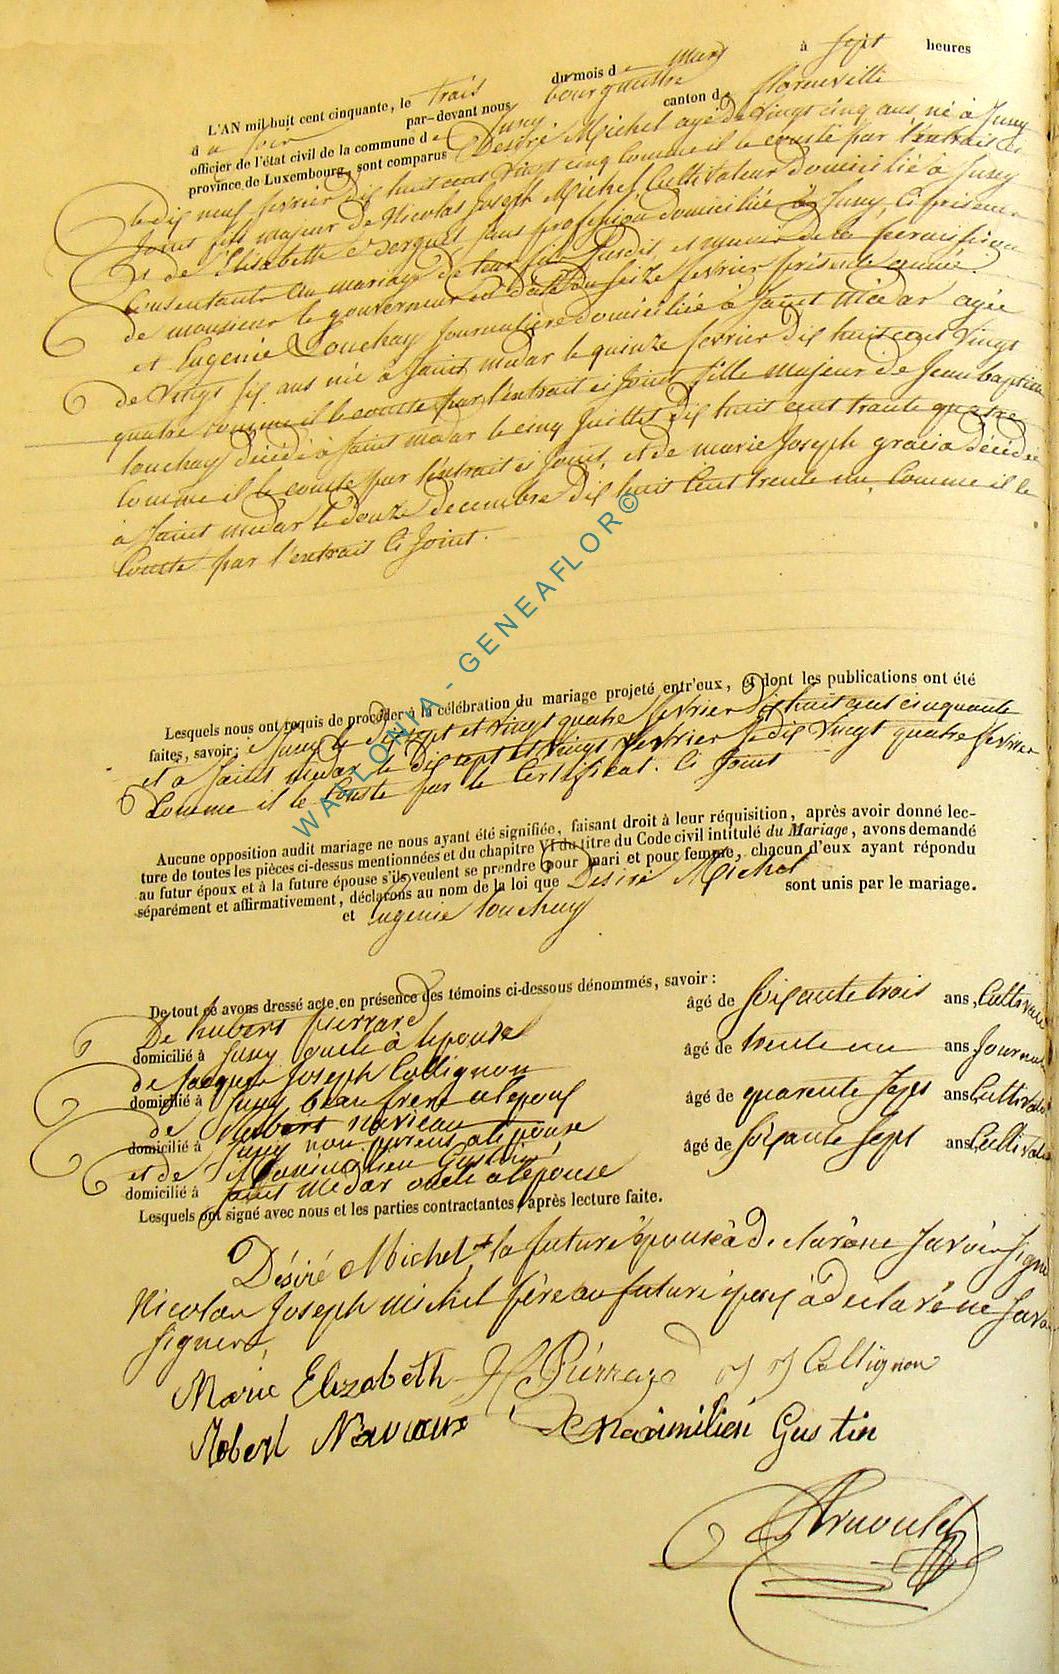 L'AN mil huit cent cinquante, le trois du mois de mars à sept heures
du soir par-devant nous bourgmestre
officier de l'état civil de la commune de Jzny. canton de florenville
province de Luxembourg, sont comparus Désiré Michel agé de Vingt cinq ans né à
le dix neuf février dix huit cent Vingt cinq comme il le conste par l'extrait ci
joint fils majeur de Nicolas Joseph Michel, Cultivateur domicilié à
et de Elisabeth sans profession domiciliée à ci présent
Consentants au mariage de leur fils susdit, et muni de la permission
de monsieur le gouverneur en date du seize février présente année.
et Eugenie Louchay Journalière domiciliée à Saint Médar agée
de Vingt six ans née à Saint medar le quinze fevrier dix huit cent Vingt
quatre comme il le conste par l'extrait ci Joint fille majeur de Jean baptiste
louchay décédé à Saint medar le cinq Juillet dix huit cent trante quatre
Comme il le conste par l'extrait ci Joint, et de marie Joseph décédée
à Saint medar le douze decembre dix huit Cent trente un, Comme il le
Conste par l'extrait Ci Joint.
WALLONIA - GENEAFLOR©
Lesquels nous ont requis de procéder à la célébration du mariage projeté entr'eux, et dont les publications ont été
faites, savoir: le dix sept et vingt quatre fevrier Dix huit cent cinquante
et à Saint medar le dix sept et vingt quatre fevrier
Comme il le Conste par le Certificat. Ci Joint
Aucune opposition audit mariage ne nous ayant été signifiée, faisant droit à leur réquisition, après avoir donné lec-
ture de toutes les pièces ci-dessus mentionnées et du chapitre VI du titre du Code civil intitulé du Mariage, avons demandé
au futur époux et à la future épouse s'ils veulent se prendre pour mari et pour femme, chacun d'eux ayant répondu
séparément et affirmativement, déclarons au nom de la loi que Desiré Michel
et eugenie louchay sont unis par le mariage.
De tout ce avons dressé acte en présence des témoins ci-dessous dénommés, savoir:
De hubert pierrard âgé de soixante trois ans, Cultivateur
domicilié à oncle à lepouse
de Jacques Joseph Collignon âgé de trente un ans Journalier
domicilié à beau frere a lepoux
de Robert naviaux âgé de quarante sept ans Cultivateur
domicilié à non parens a lepouse
et de Maximilien Gustin âgé de soixante sept ans Cultivateur
domicilié à saint medar oncle a lepouse
Lesquels ont signé avec nous et les parties contractantes, après lecture faite.
Désiré Michel la future épouse à déclaré ne savoir signé
Nicolas Joseph michel père au future époux à déclaré ne savoir
signer,
Marie Elizabeth H Pierrard J J Collignon
Robert Naviaux Maximilien Gustin
Arnoulet